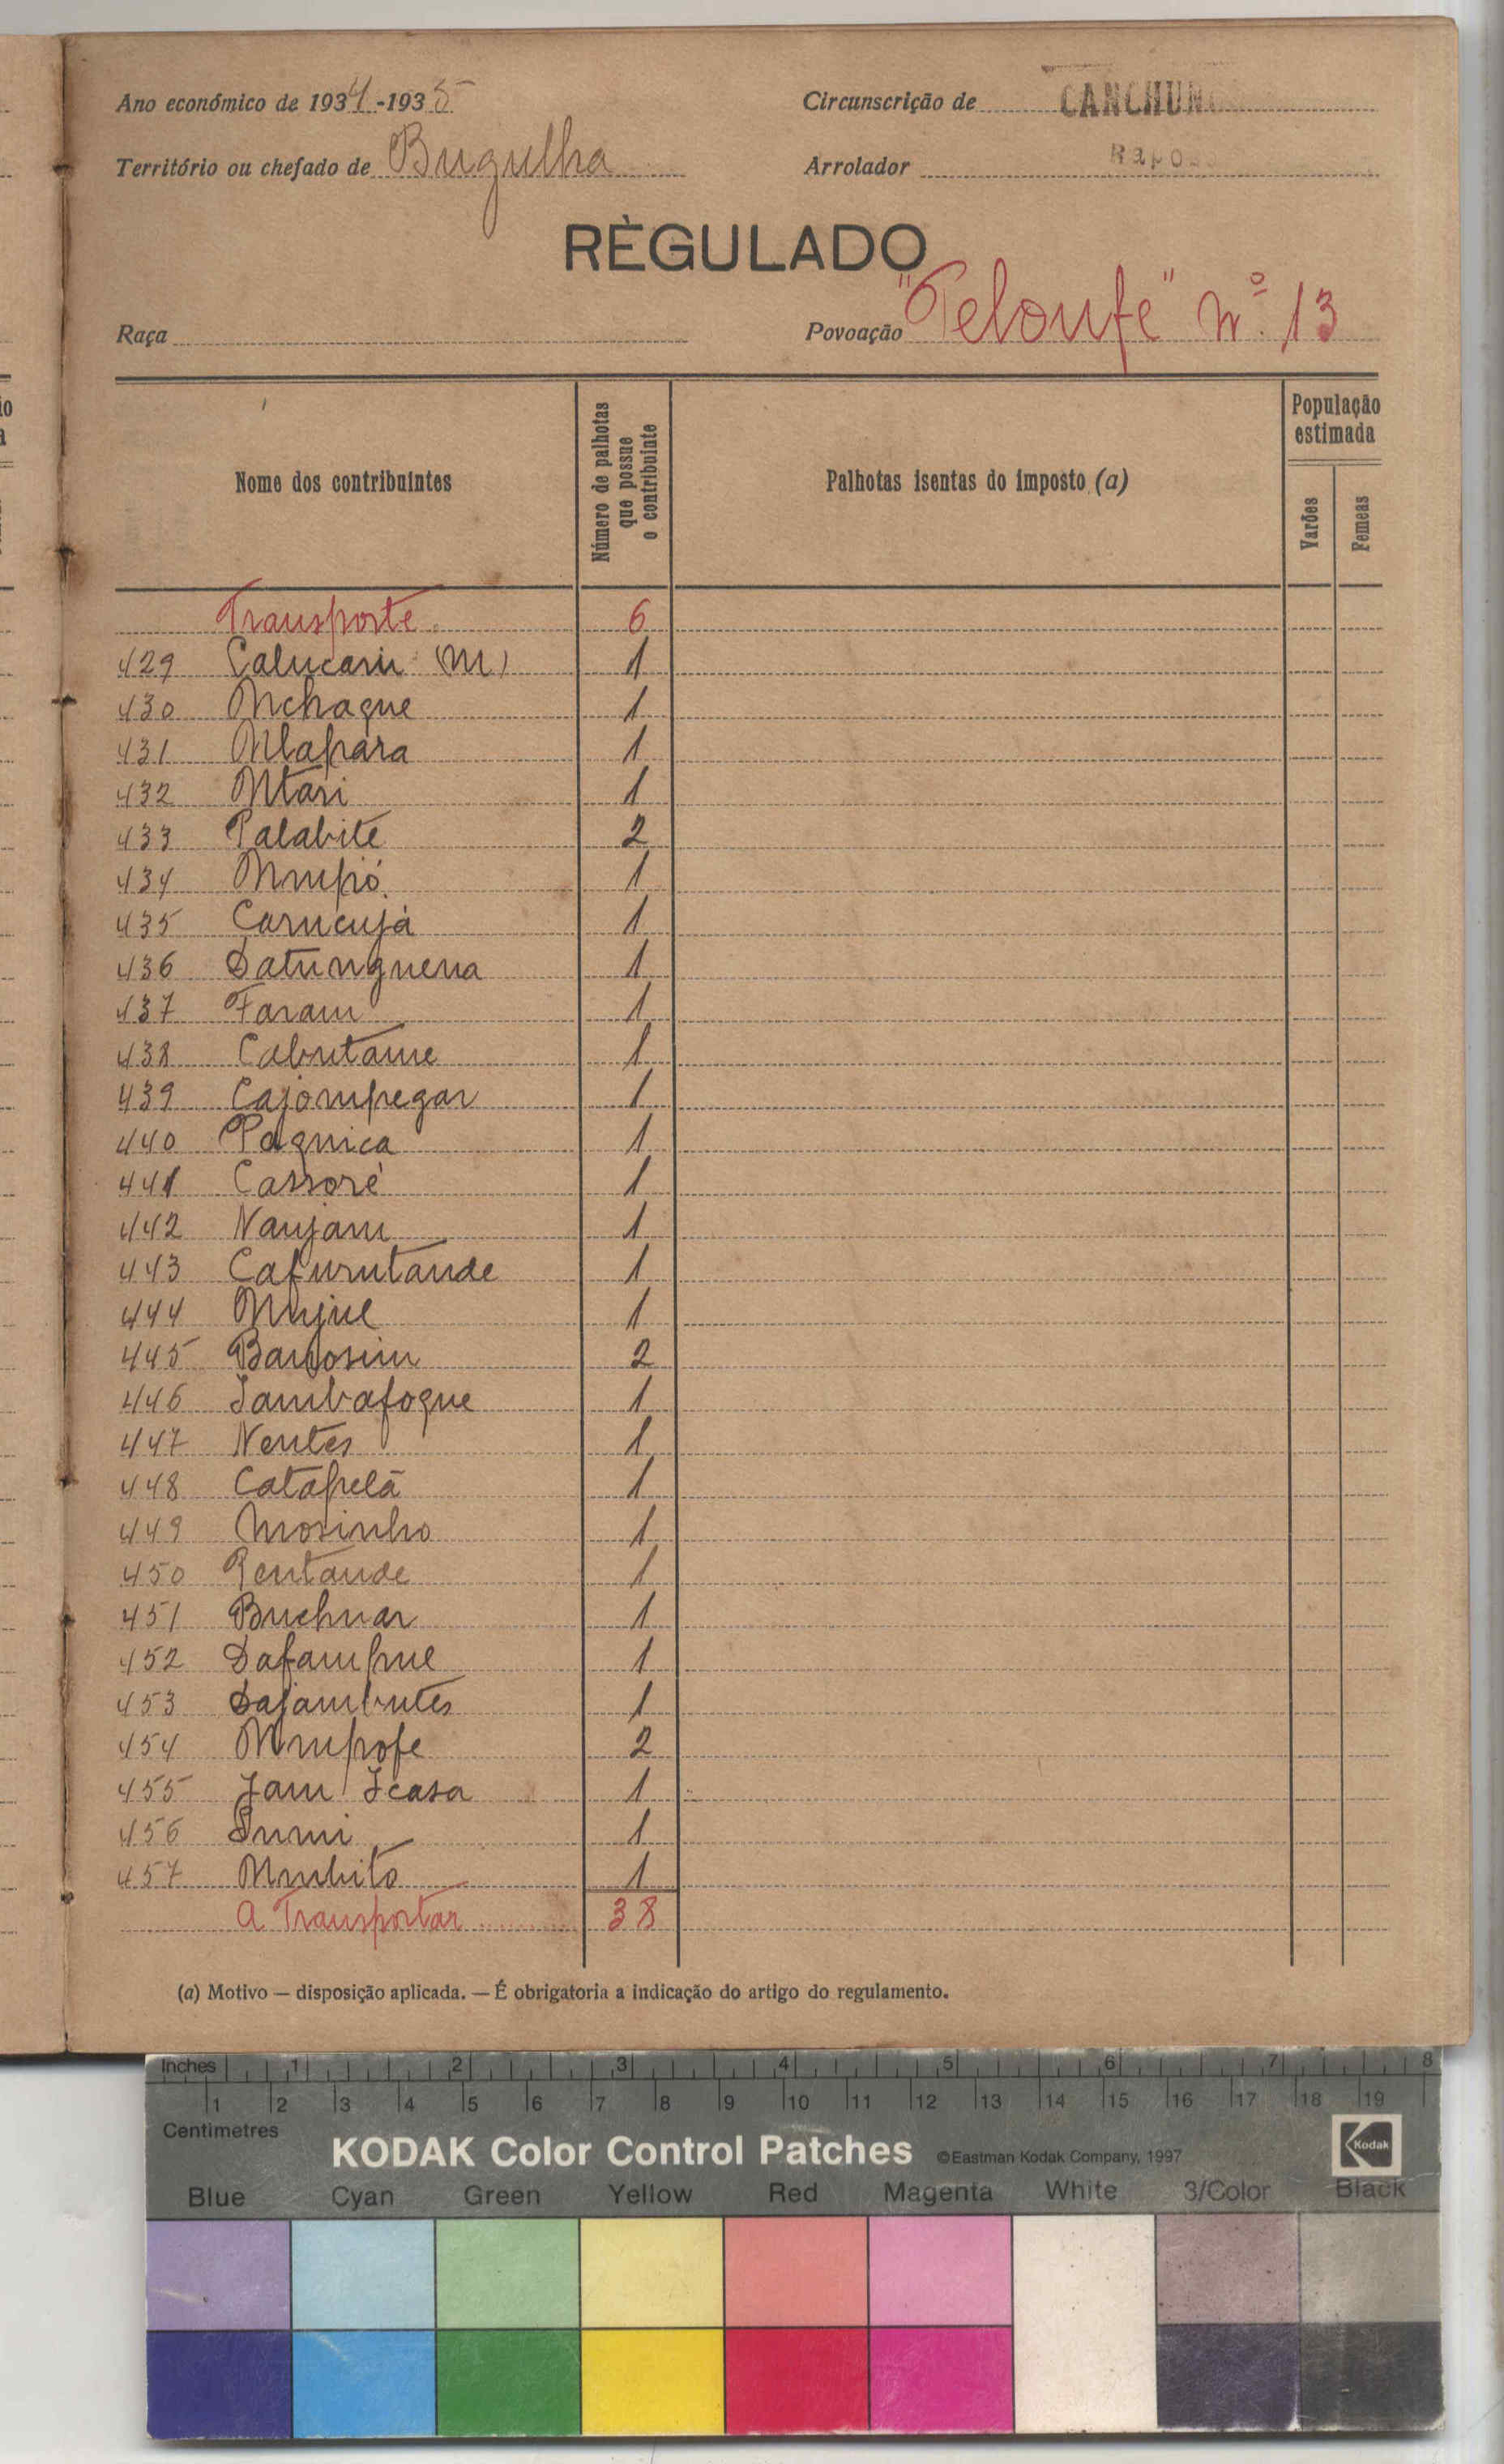 Ano económico de 1934-1935
Circunscrição de CANCHUN
Território ou chefado de Bugulha
Arrolador Rapo
RÈGULADO
Raça
Povoação "Peloufe" Nº 13
Nome dos contribuintes
Número de palhotas que possue o contribuinte
Palhotas isentas do imposto (a)
População estimada
Varões
Femeas
Transporte 6
429 Calucari (M) 1
430 Mchaque 1
431 Mlapara 1
432 Mtari 1
433 Palabite 2
434 Mmpió 1
435 Carucujá 1
436 Datunguena 1
437 Faram 1
438 Cabutame 1
439 Cajompegar 1
440 Paquica 1
441 Cassoré 1
442 Nanjam 1
443 Cafurutande 1
444 Mujul 1
445 Banosim 2
446 Jambafoque 1
447 Nentes 1
448 Catapelã 1
449 Mosinho 1
450 Pentande 1
451 Buchuar 1
452 Dafampul 1
453 Dajambutes 1
454 Mmpofe 2
455 Jam Icasa 1
456 Dumi 1
457 Mmbito 1
A Transportar 38
(a) Motivo — disposição aplicada. — É obrigatoria a indicação do artigo do regulamento.
Inches 1 2 3 4 5 6 7 8
1 2 3 4 5 6 7 8 9 10 11 12 13 14 15 16 17 18 19
Centimetres
KODAK Color Control Patches ©Eastman Kodak Company, 1997 Kodak
Blue Cyan Green Yellow Red Magenta White 3/Color Black